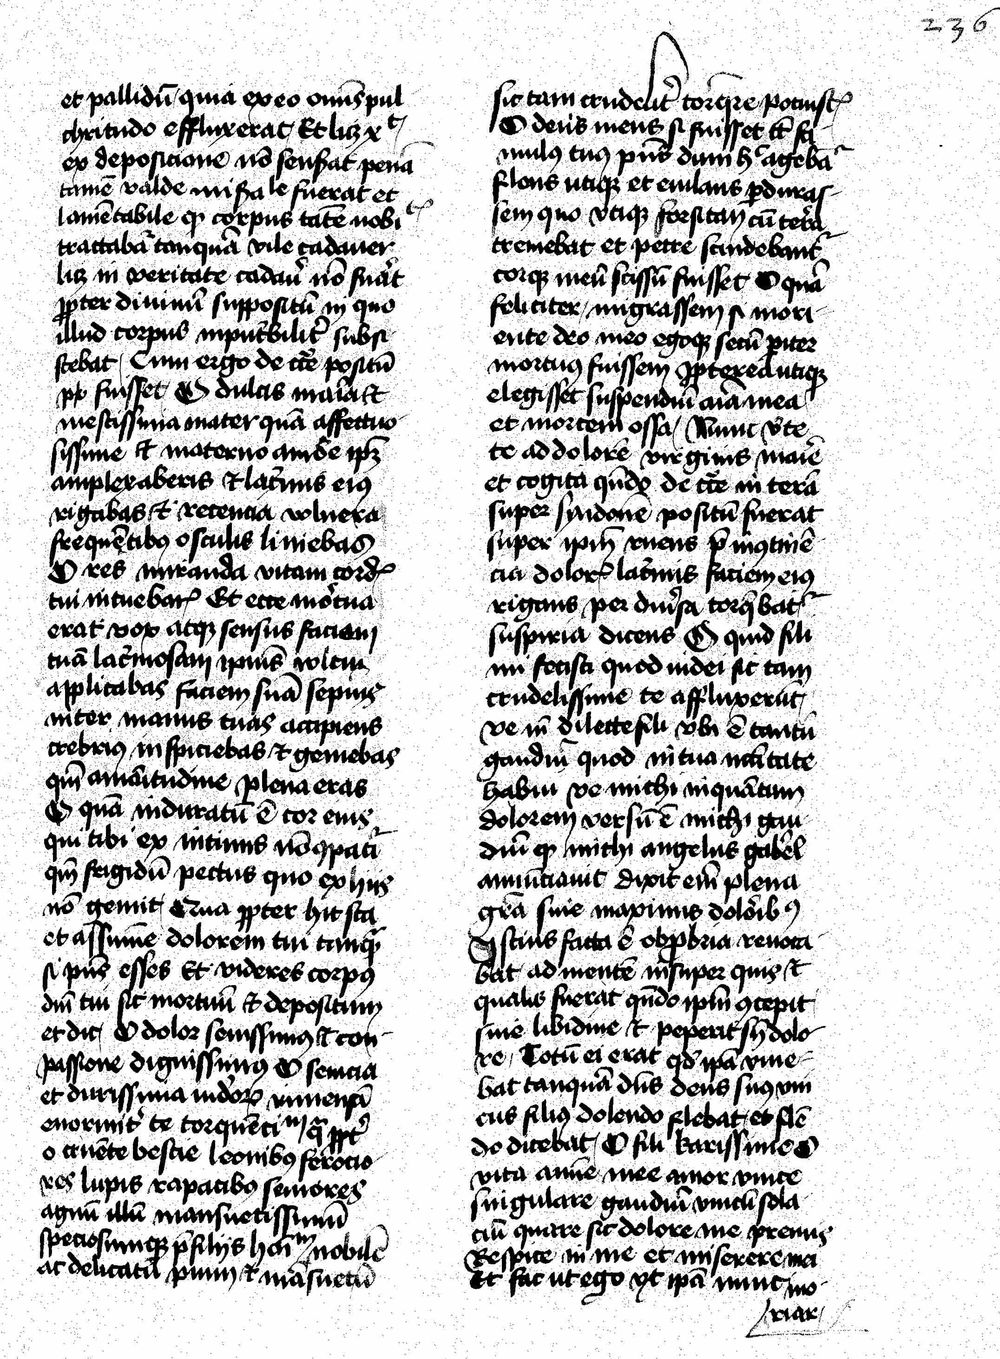 236
et pallidū quia ex eo omīs pul
chritudo effluxerat Et licꝫ xꝰ
ex deposicione nō senserat penā
tamē valde mirabile fuerat et
lamētabile qꝫ corpus tātē nobi
tractabāt tanquā vile cadauer
licꝫ in veritate cadauer nō fuāt
ꝓpter diuinū suppositū in quo
illud corpus subsi
stebat Cum ergo de cruce positū
fuisset O dulcis maria et
mestissima mater quā affectuo
sissime et materno amōe ipꝫ
amplexaberis et lacrimis eiꝰ
rigabas et recencia vulnera
frequētibꝰ osculis liniebas
O res miranda vitam cordis
tui intuebaris Et ecce mortua
erat vox atqꝫ sensus faciem
tuā lacrimosam ipius vultui
applicabas faciem suā sepius
inter manus tuas accipiens
crebriꝰ inspiciebas et gemebas
qm̄ amaritudine plena eras
O quā induratū ē cor eius
qui tibi ex intimis nō ꝯpatit
qm̄ frigidū pectus quo ex hiis
nō gemit Qua ꝓpter hic sta
et assume dolorem tui tanqꝫ
si pn̄s esses Et videres corpꝰ
dn̄i tui sic mortuū et depositum
et dic O dolor seuissimꝰ et con
passione dignissimꝰ O seuicia
et durissima iudeoꝝ
enormit̄ te torquenciū
o cruente bestie leonibꝰ ferocio
res lupis rapacibꝰ seuiores
agnū illū mansuetissimū
speciosumqꝫ p̄ filiis hoīm nobilē
ac delicatū pium et māsuetū
sic tam crudelit̄ torquere potuistis
O deus meus si fuisset tc̄ fa
mulus tuus pn̄s dum hec agebāt
flens vtiqꝫ et eiulans ꝑduras
sem quo vtiqꝫ forsitan cū terra
tremebat et petre scindebantur
corqꝫ meū scissū fuisset O quā
feliciter migrassem si mori
ente deo meo egoqꝫ secū pariter
mortuus fuissem ꝓpterea vtiqꝫ
elegisset suspendiū aīa mea
et mortem ossa Nunc verte
te ad dolorē virginis marie
et cogita qn̄do de cruce in terrā
super syndonē positū fuerat
super ipm̄ ruens p̄
cia doloris lacrimis faciem eiꝰ
rigans per diu̓sa torq̄bat̄
suspiria dicens O quid fili
mi fecisti quod iudei sic tam
crudelissime te affluxerūt
ve m̄ dilecte fili vbi ē tantū
gaudiū quod in tua natiuitate
habui ve michi inquātum
dolorem versū ē michi gau
diū qꝫ michi angelus gabriel
annūciauit dixit em̄ plena
grā sine maximis doloribꝰ
Istius facta ē obprobria reuoca
bat ad mentē insuper quis et
qualis fuerat qn̄do ipm̄ ꝯcepit
sine libidine et peperit sn̄ dolo
re Totū ei erat qd̓ ipā viue
bat tanquā dn̄s deus suus vni
cus filiꝰ dolendo flebat et flē
do dicebat O fili karissime O
vita anīe mee amor vnice
singulare gaudiū vnicū sola
ciū quare sic dolore me premis
Respice in me et miserere mei
Et fac ut ego vt ipā nunc mo
riar